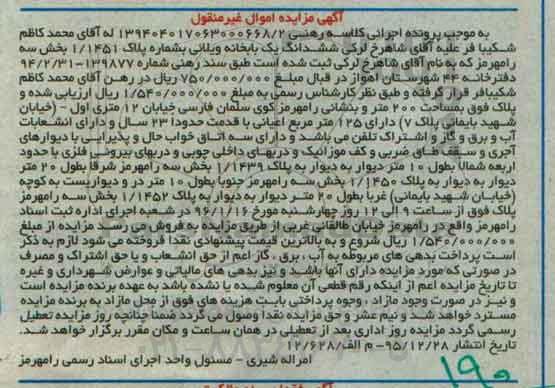 آگهی مزایده اموال غیرمنقول
به موجب پرونده اجرائی کلاسه رهنی ۱۳۹۴۰۴۰۱۷۰۶۳۰۰۰۶۶۸/۲ له آقای محمد کاظم
شکیبا فر علیه آقای شاهرخ لرکی ششدانگ یک بابخانه ویلائی بشماره پلاک ۱/۱۴۵۱ بخش سه
رامهرمز که به نام آقای شاهرخ لرکی ثبت شده است طبق سند رهنی شماره ۱۳۹۸۷۷-۹۴/۲/۳۱
دفترخانه ۴۴ شهرستان اهواز در قبال مبلغ ۷۵۰/۰۰۰/۰۰۰ ریال در رهن آقای محمد کاظم
شکیبافر قرار گرفته و طبق نظر کارشناس رسمی به مبلغ ۱/۵۴۰/۰۰۰/۰۰۰ ریال ارزیابی شده و
پلاک فوق بمساحت ۲۰۰ متر و بنشانی رامهرمز کوی سلمان فارسی خیابان ۱۲ متری اول - (خیابان
شهید بایمانی پلاک ۷) دارای ۱۲۵ متر مربع اعیانی با قدمت حدودا ۲۳ سال و دارای انشعابات
آب و برق و گاز و اشتراک تلفن می باشد و دارای سه اتاق خواب حال و پذیرایی با دیوارهای
آجری و سقف طاق ضربی و کف موزائیک و دربهای داخلی چوبی و دربهای بیرونی فلزی با حدود
اربعه شمالا بطول ۱۰ متر دیوار به دیوار به پلاک ۱/۱۴۳۹ بخش سه رامهرمز شرقا بطول ۲۰ متر
دیوار به دیوار به پلاک ۱/۱۴۵۰ بخش سه رامهرمز جنوبا بطول ۱۰ متر در و دیواریست به کوچه
(خیابان شهید بایمانی) غربا بطول ۲۰ متر دیوار به دیوار به پلاک ۱/۱۴۵۲ بخش سه رامهرمز
پلاک فوق از ساعت ۹ الی ۱۲ روز چهارشنبه مورخ ۹۶/۱/۱۶ در شعبه اجرای اداره ثبت اسناد
رامهرمز واقع در رامهرمز خیابان طالقانی غربی از طریق مزایده به فروش می رسد مزایده از مبلغ
۱/۵۴۰/۰۰۰/۰۰۰ ریال شروع و به بالاترین قیمت پیشنهادی نقدا فروخته می شود لازم به ذکر
است پرداخت بدهی های مربوطه به آب ، برق ، گاز اعم از حق انشعاب و یا حق اشتراک و مصرف
در صورتی که مورد مزایده دارای آنها باشد و نیز بدهی های مالیاتی و عوارض شهرداری و غیره
تا تاریخ مزایده اعم از اینکه رقم قطعی آن معلوم شده یا نشده باشد به عهده برنده مزایده است
و نیز در صورت وجود مازاد ، وجوه پرداختی بابت هزینه های فوق از محل مازاد به برنده مزایده
مسترد خواهد شد و نیم عشر و حق مزایده نقدا وصول می گردد ضمنا چنانچه روز مزایده تعطیل
رسمی گردد مزایده روز اداری بعد از تعطیلی در همان ساعت و مکان مقرر برگزار خواهد شد.
تاریخ انتشار ۹۵/۱۲/۲۸- م الف/۱۲/۶۲۸
امراله شیری - مسئول واحد اجرای اسناد رسمی رامهرمز